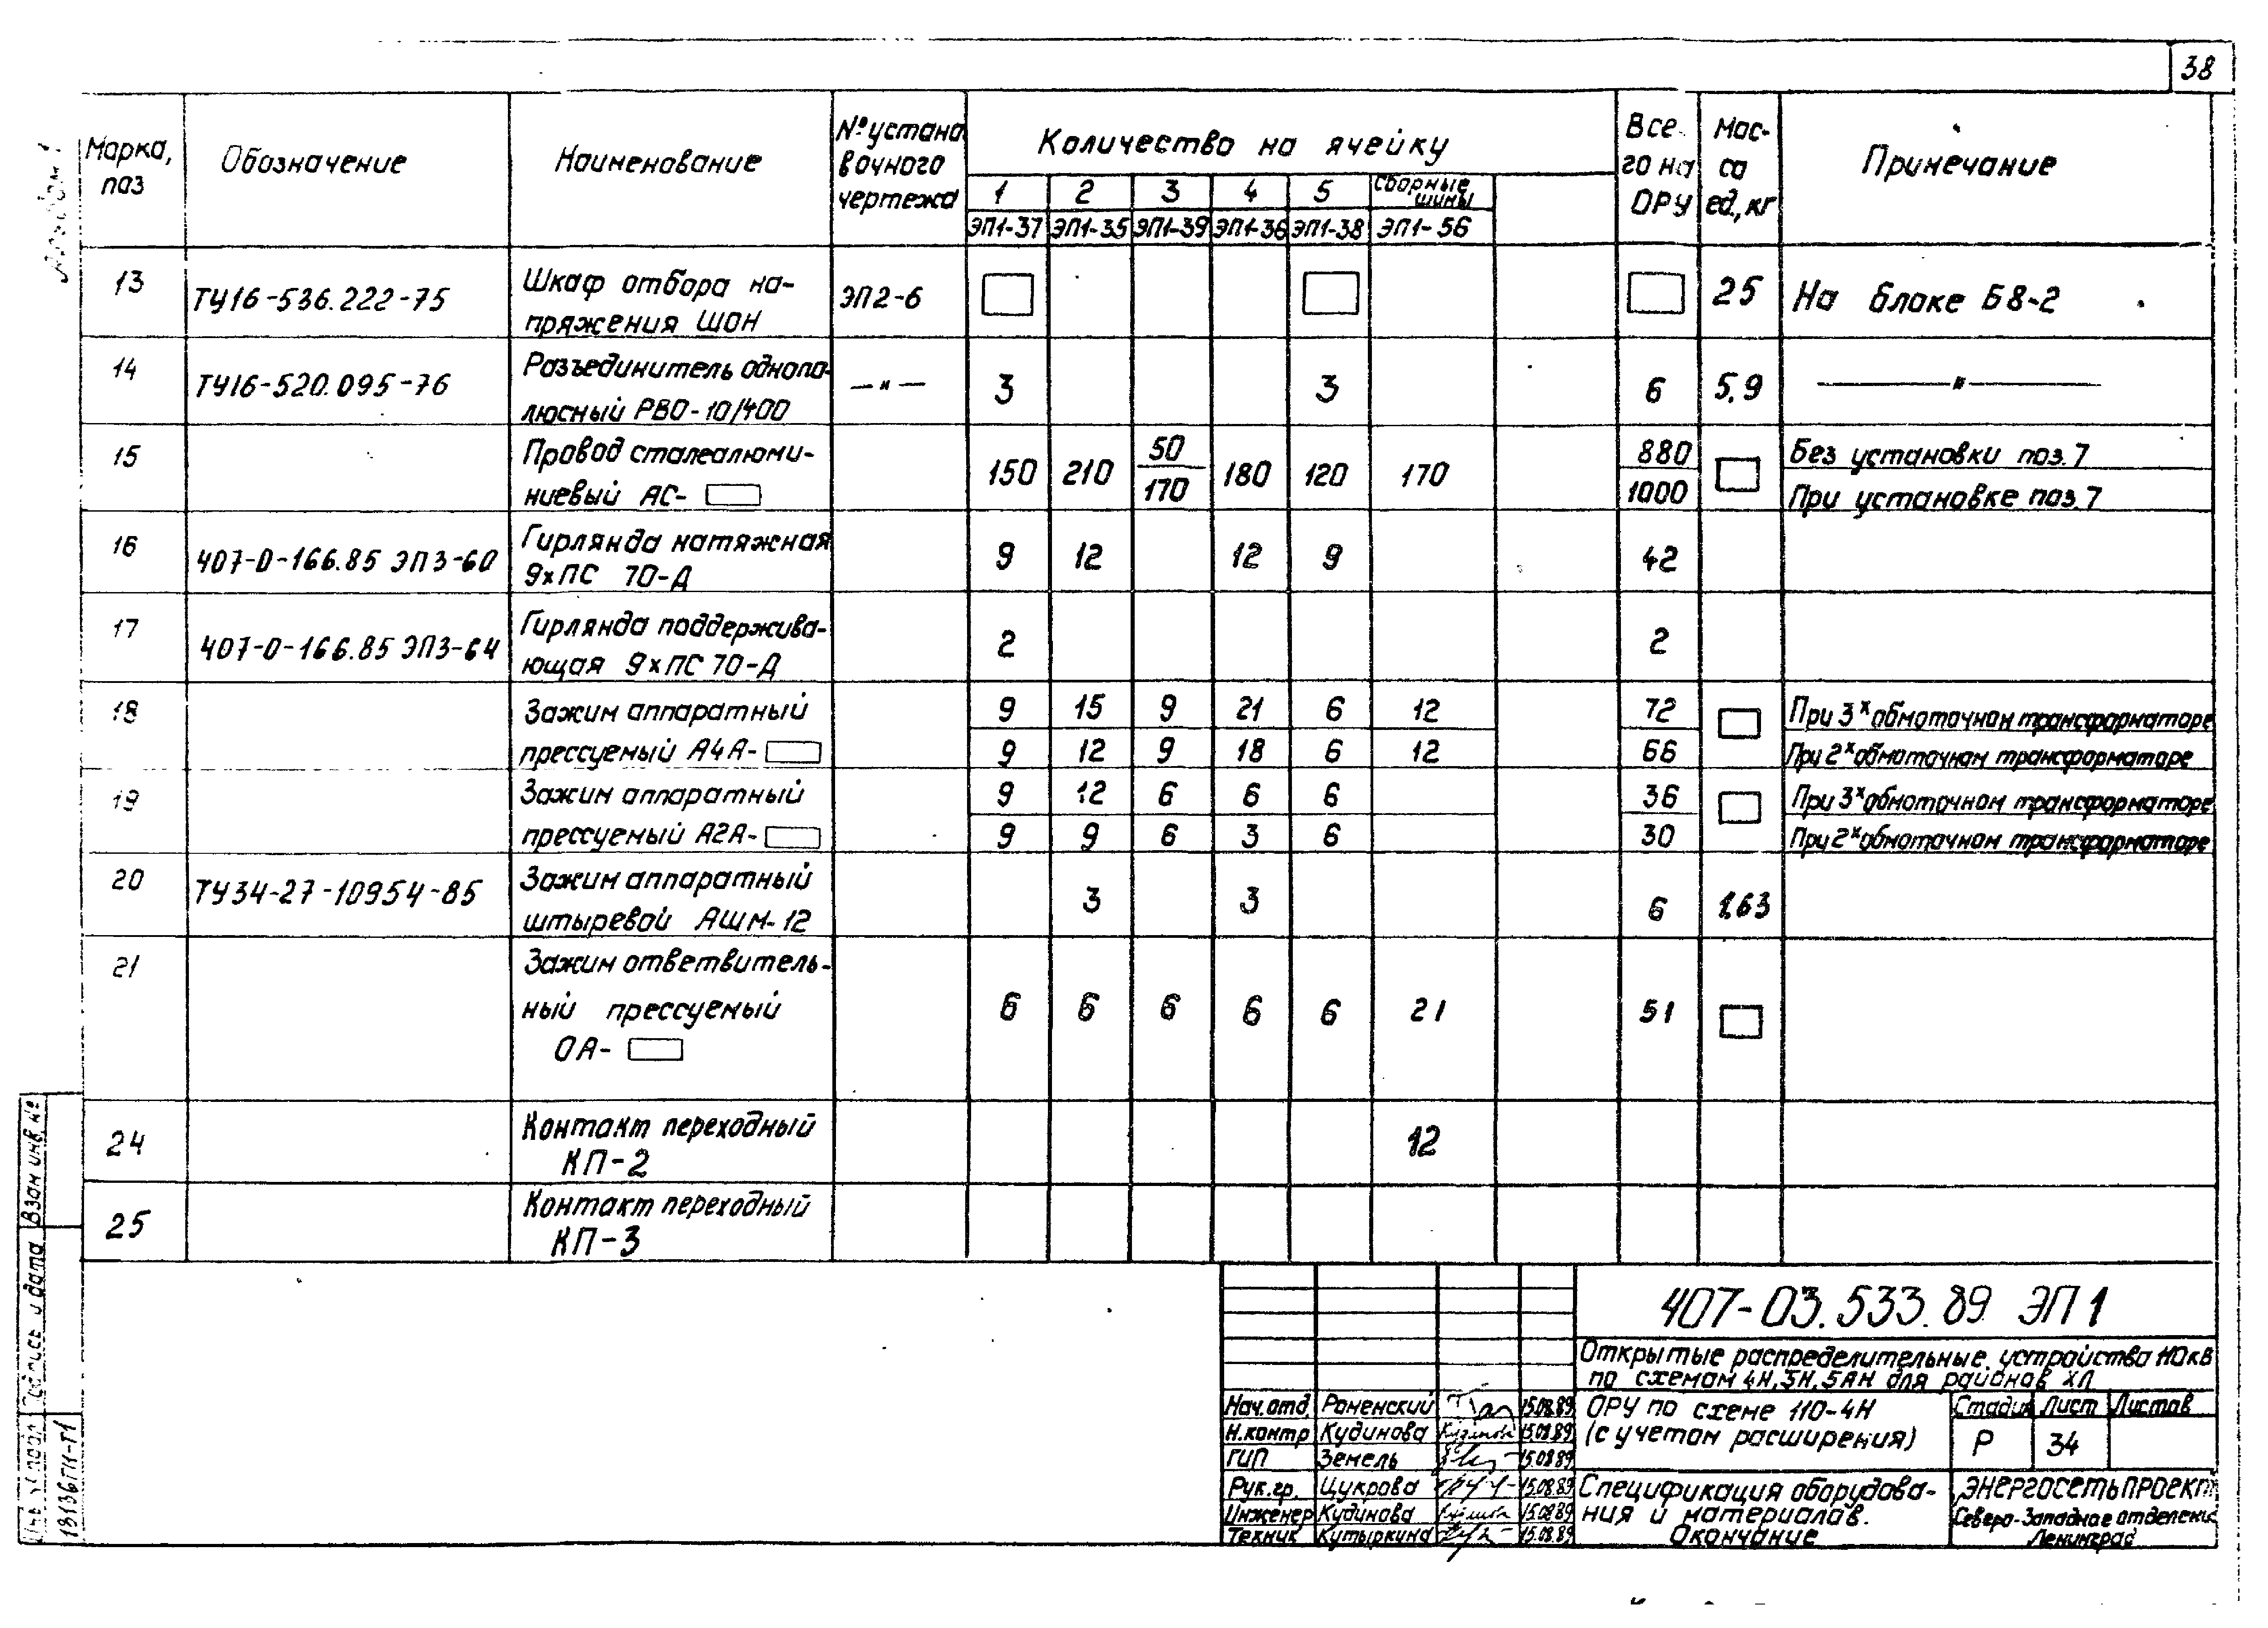 38
Альбом 1
Марка, поз
Обозначение
Наименование
№ установочного чертежа
Количество на ячейку
1 2 3 4 5 Сборные шины
ЭП1-37 ЭП1-35 ЭП1-39 ЭП1-36 ЭП1-38 ЭП1-56
Всего на ОРУ
Масса ед, кг
Примечание
13 ТУ16-536.222-75 Шкаф отбора на- ЭП2-6 25 На блоке Б8-2
пряжения ШОН
14 ТУ16-520.095-76 Разъединитель однопо- —"— 3 3 6 5,9 —"—
люсный РВО-10/400
15 Провод сталеалюми- 150 210 50 180 120 170 880 Без установки поз.7
ниевый АС- 170 1000 При установке поз.7
16 407-0-166.85 ЭП3-60 Гирлянда натяжная 9 12 12 9 42
9хПС 70-Д
17 407-0-166.85 ЭП3-64 Гирлянда поддержива- 2 2
ющая 9хПС 70-Д
18 Зажим аппаратный 9 15 9 21 6 12 72 При 3х обмоточном трансформаторе
прессуемый А4А- 9 12 9 18 6 12 66 При 2х обмоточном трансформаторе
19 Зажим аппаратный 9 12 6 6 6 36 При 3х обмоточном трансформаторе
прессуемый А2А- 9 9 6 3 6 30 При 2х обмоточном трансформаторе
20 ТУ34-27-10954-85 Зажим аппаратный 3 3 6 1,63
штыревой АШМ-12
21 Зажим ответвитель-
ный прессуемый 6 6 6 6 6 21 51
ОА-
24 Контакт переходный 12
КП-2
25 Контакт переходный
КП-3
Взам инв. №
Подпись и дата
Инв. № подл
407-03.533.89 ЭП1
Открытые распределительные устройства 110кВ
по схемам 4Н, 5Н, 5АН для районов ХЛ
Нач. отд. Роменский 15.08.89
Н.контр Кудинова 15.08.89
ГИП Земель 15.08.89
Рук. гр. Цукрова 15.08.89
Инженер Кудинова 15.08.89
Техник Кутыркина 15.08.89
ОРУ по схеме 110-4Н
(с учетом расширения)
Стадия Лист Листов
Р 34
Спецификация оборудова-
ния и материалов.
Окончание
ЭНЕРГОСЕТЬПРОЕКТ
Северо-Западное отделение
Ленинград